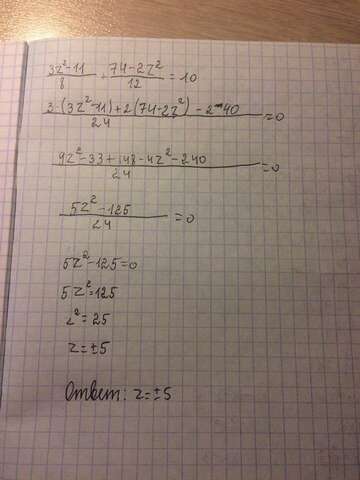 (3z²-11)/8 + (74-2z²)/12 = 10
(3·(3z²-11)+2(74-2z²)-240)/24 = 0
(9z²-33+148-4z²-240)/24 = 0
(5z²-125)/24 = 0
5z²-125=0
5z²=125
z²=25
z=±5
Ответ: z=±5